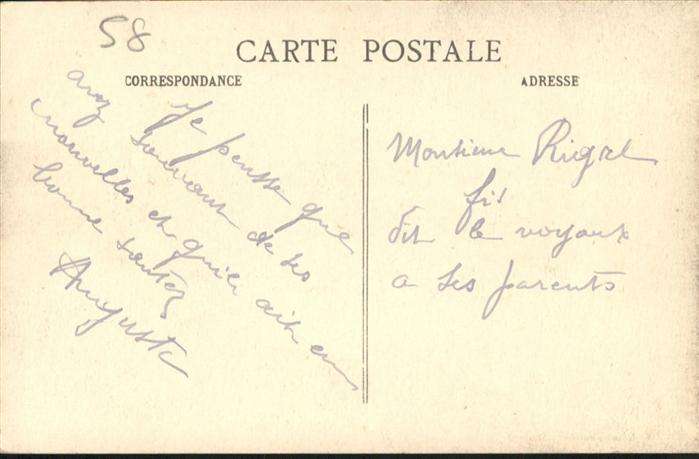 58
CARTE POSTALE
CORRESPONDANCE
ADRESSE
Je pensse que
avez souvant de ses
nouvelles et qu'il ait en
bonne santez
Auguste
Monsieur Rigrel
fis
dit le voyoux
a ses parents